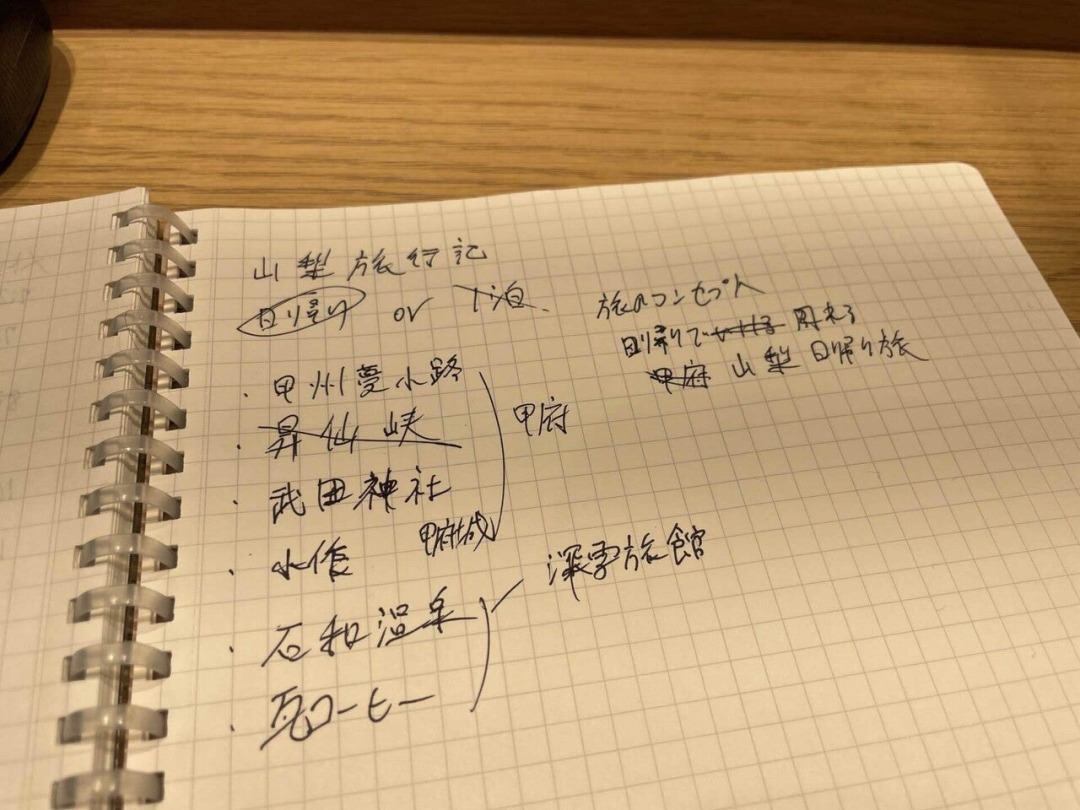 山梨旅行記
日帰り or 1泊
・甲州夢小路
・昇仙峡
・武田神社
甲府城
・小作
・石和温泉
・瓦コーヒー
甲府
深雪旅館
旅のコンセプト
日帰りで 出来る
甲府 山梨 日帰り旅